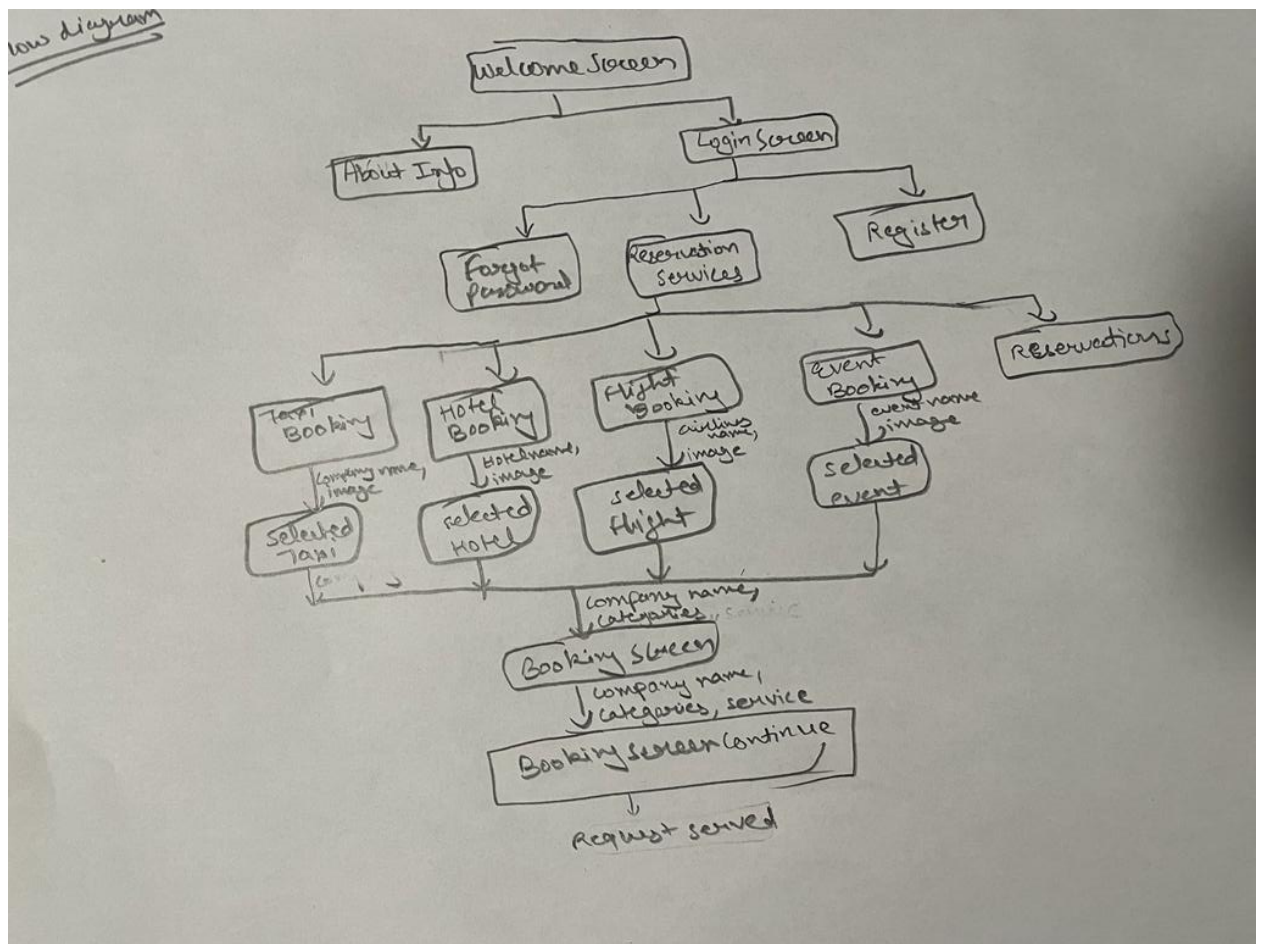 low diagram
Welcome Screen
About Info
Login Screen
Forgot
password
Reservation
services
Register
Taxi
Booking
Hotel
Booking
Flight
Booking
Event
Booking
Reservations
company name,
image
Hotel name,
image
airlines
name,
image
event name
, image
selected
Taxi
selected
Hotel
selected
flight
selected
event
company name,
categories, service
Booking screen
company name,
categories, service
Booking screen continue
Request served